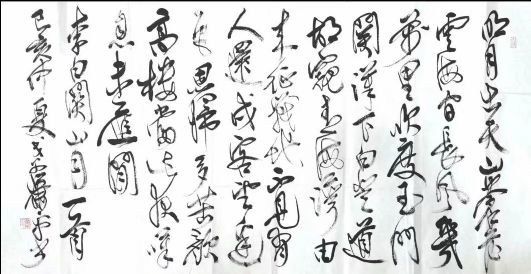 明月出天山蒼茫
雲海間長風幾
萬里吹度玉門
關漢下白登道
胡窺青海灣由
來征戰地不見有
人還戍客望邊
色思歸多苦顏
高樓當此夜嘆
息未應閑
李白關山月一首
己亥仲夏